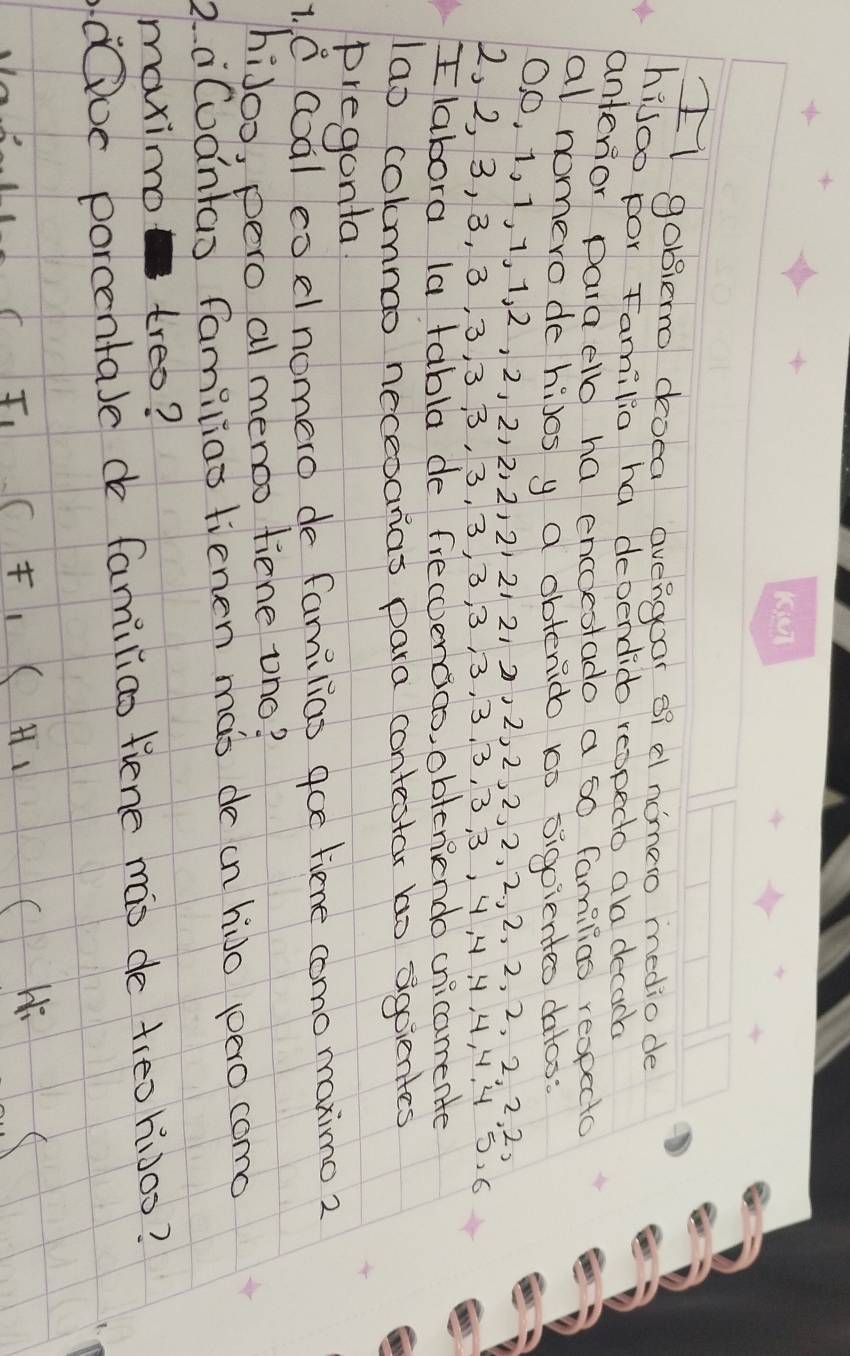 Kiut
El gobierno desea averiguar si el número medio de
hijos por Familia ha desendido respecto ala decada
anterior para ello ha encuestado a 50 familias respecto
al numero de hijos y a obtenido los siguientes datos:
0,0, 1, 1, 1, 1, 2, 2, 2, 2, 2, 2, 2, 2, 2, 2, 2, 2, 2, 2, 2, 2, 2, 2, 2, 2,
2, 2, 3, 3, 3, 3, 3, 3, 3, 3, 3, 3, 3, 3, 3, 3, 3, 4, 4, 4, 4, 4, 4 5, 6
Elabora la tabla de frecuencias, obteniendo unicamente
las columnas necesarias para contestar las siguientes
pregunta.
1. ¿ cuál es el numero de familias que tiene como maximo 2
hijos, pero al menos tiene uno?
2.- ¿Cuántas familias tienen más de un hijo pero como
maximo tres?
¿Que porcentaje de familias tiene más de tres hijos?
Fi